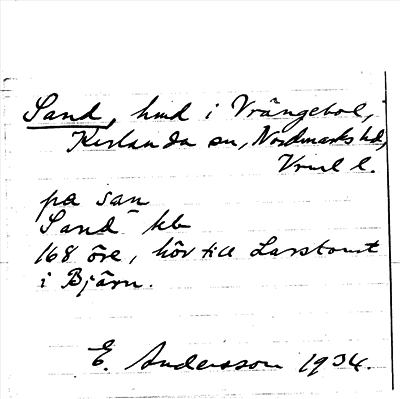 Sand, hmd i Vrångebol,
Karlanda sn, Nordmarks hd,
Vrml l.
pa san
Sand kb
168 öre, hör till Larstomt
i Bjärn.
E. Andersson 1934.